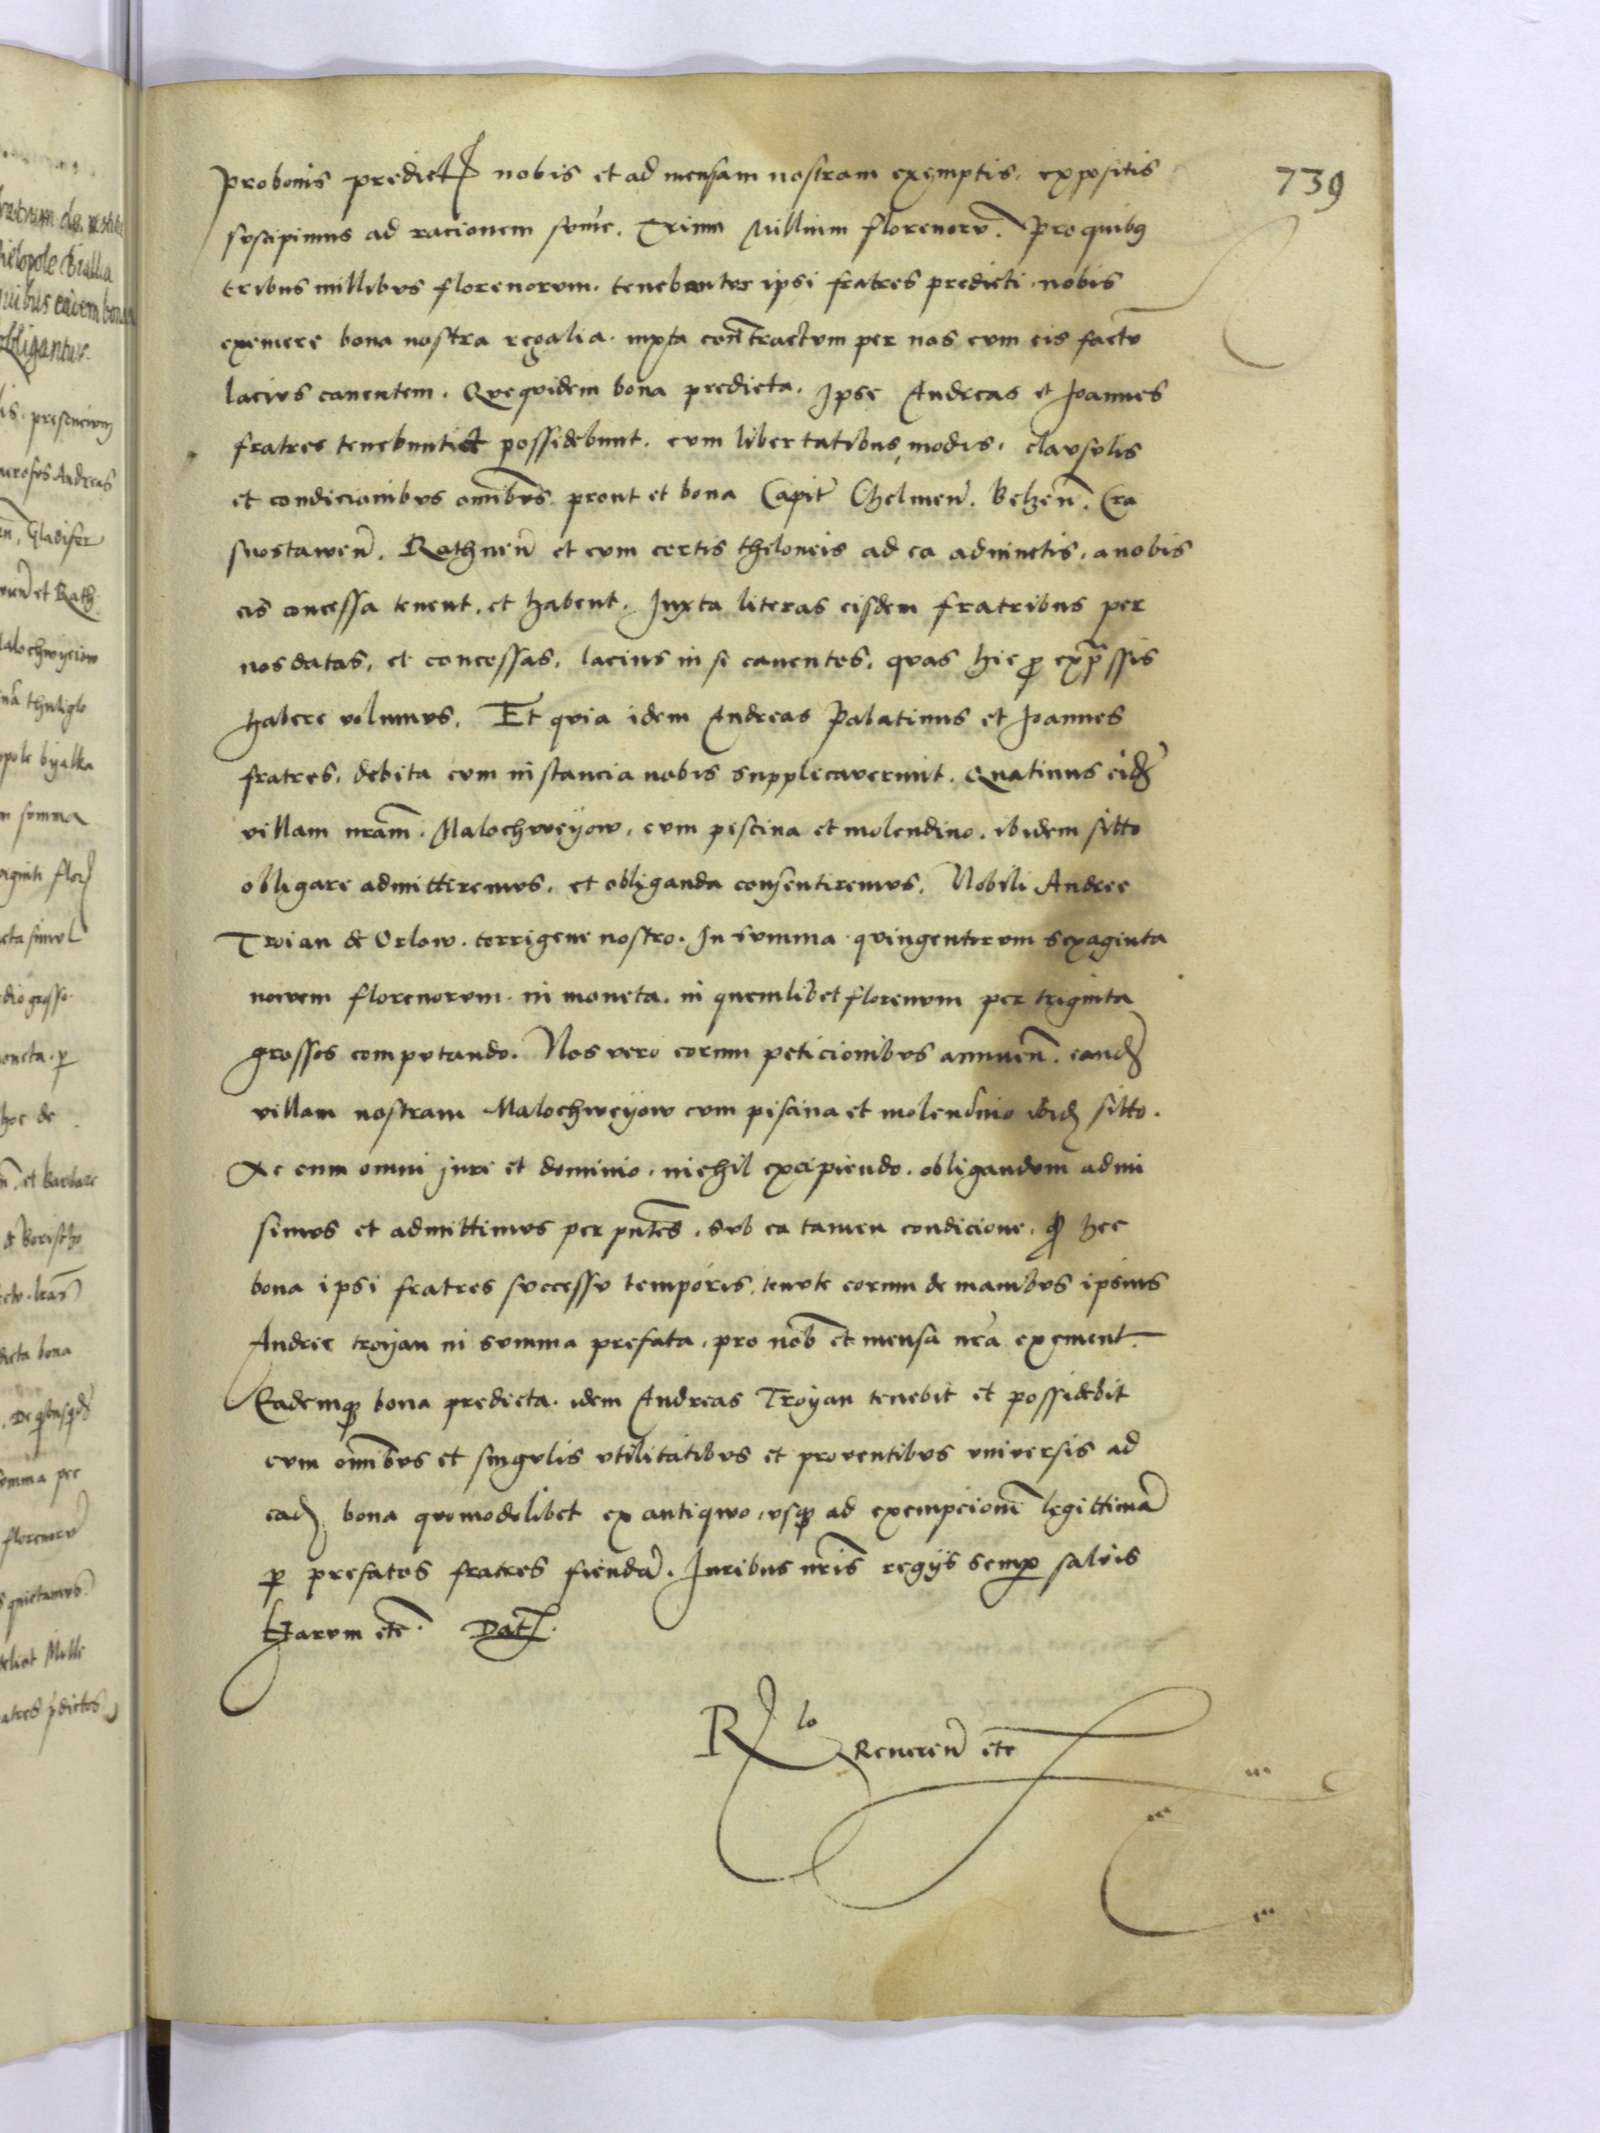 739
pro bonis predict nobis et ad mensam nostram exemptis, expositis
suscipimus ad racionem sume. Trium Millium florenorū. Pro quibus
tribus millibus florenorum. tenebuntur ipsi fratres predicti nobis
exemere bona nostra regalia. iuxta contractum per nos cum eis factū
lacius canentem. Que quidem bona predicta. Ipse Andreas et Joannes
fratres tenebunt et possidebunt. cum libertatibus, modis, clausulis
et condicionibus omībus prout et bona Capit Chelmeñ. Belzeñ. Cra
snostaweñ. Rathneñ et cum certis theloneis ad ea adiunctis, a nobis
eis concessa tenent, et habent. Juxta literas eisdem fratribus per
nos datas, et concessas, lacius in se canentes, quas hic p expressis
habere volumus. Et quia idem Andreas Palatinus et Joannes
fratres, debita cum instancia nobis supplicaverunt. Quatinus eid
villam nrām. Malochweyow, cum piscina et molendino, ibidem sitto
obligare admitteremus, et obliganda consentiremus. Nobili Andree
Troian de Orlow. terrigene nostro. In summa quingentorum sexaginta
novem florenorum in moneta. in quemlibet florenum per triginta
grossos computando. Nos vero eorum peticionibus annueñ. eand
villam nostram Malochweyow cum piscina et molendino ibid sitto.
Ac cum omni jure et dominio, nichil excipiendo. obligandum admi
simus et admittimus per pntes, sub ea tamen condicione, q hec
bona ipsi fratres successu temporis, tenute eorum de manibus ipsius
Andree troyan in summa prefata, pro nob et mensa nra exement.
Eademq bona predicta. idem Andreas Troyan tenebit et possidebit
cum omībus et singulis utilitatibus et proventibus universis ad
ead bona quomodolibet ex antiquo, usq ad exempcionē legittimā
p prefatos fratres fiendā. Juribus nris regijs semp salvis
Harum etc. Dat.
R lo Reveren etc